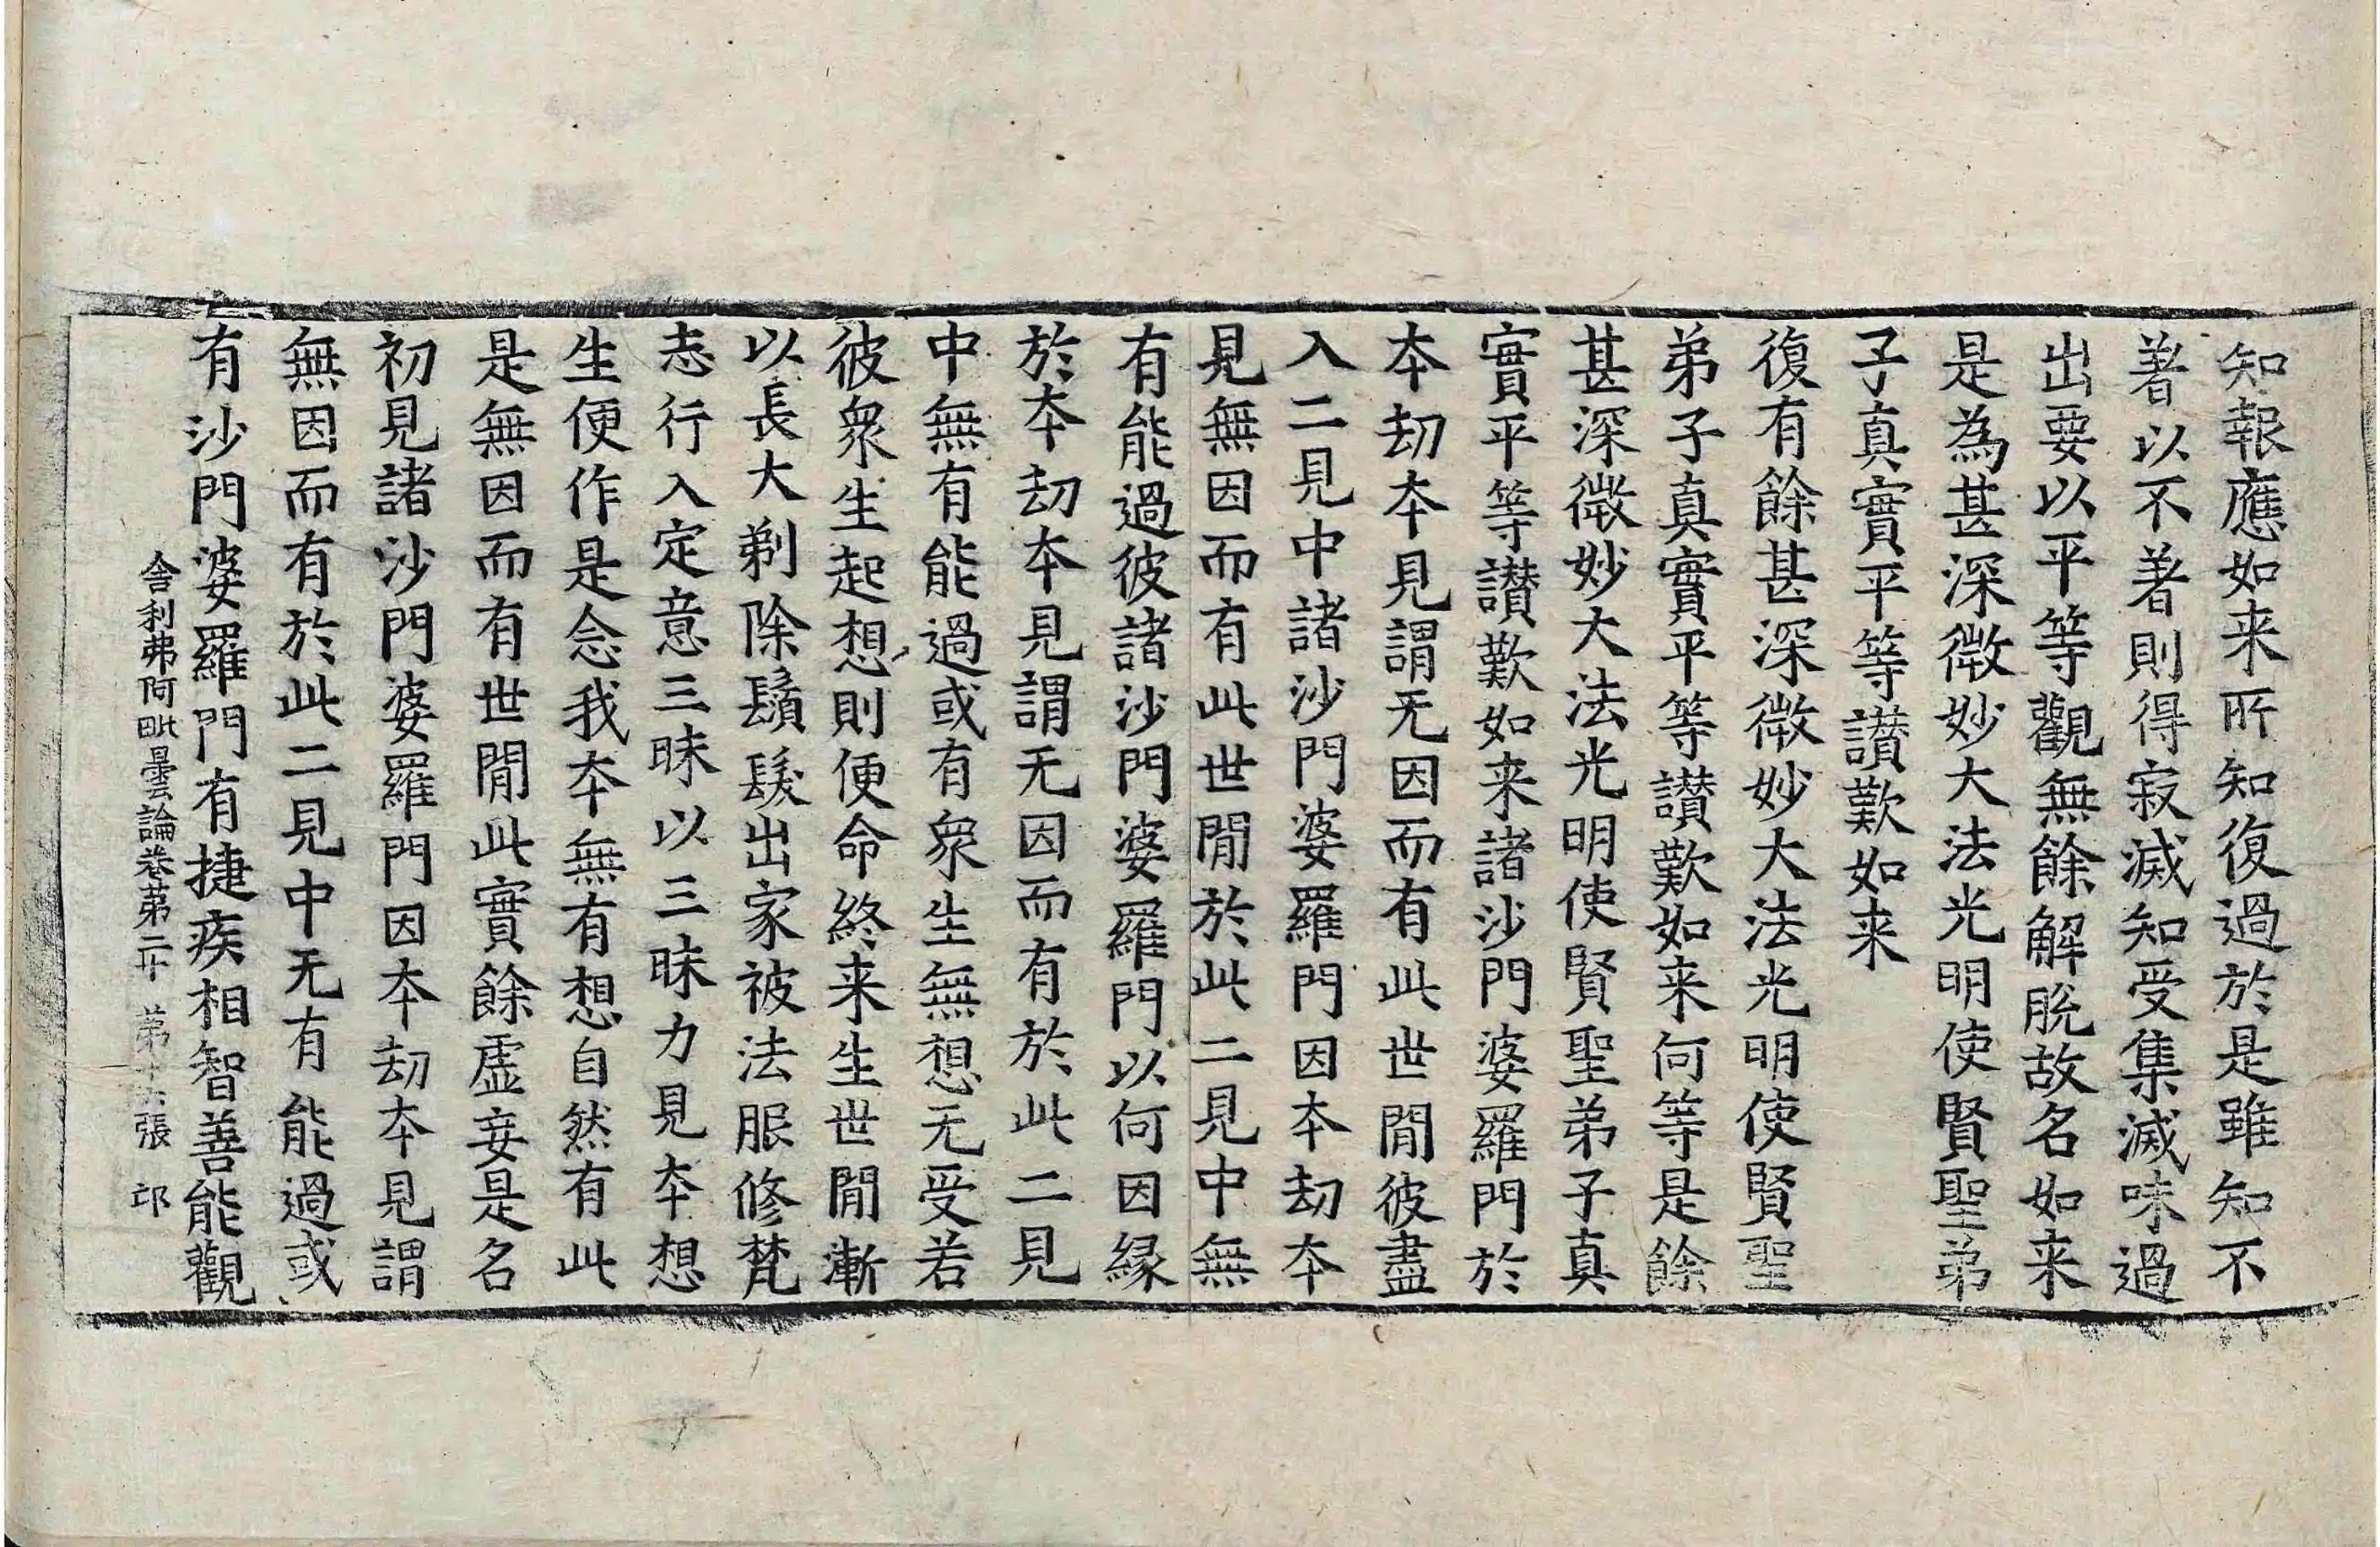 知報應如来所知復過於是雖知不
著以不著則得寂滅知受集滅味過
出要以平等觀無餘解脫故名如来
是為甚深微妙大法光明使賢聖弟
子真實平等讃歎如来
復有餘甚深微妙大法光明使賢聖
弟子真實平等讃歎如来何等是餘
甚深微妙大法光明使賢聖弟子真
實平等讃歎如来諸沙門婆羅門於
夲刧夲見謂无因而有此世閒彼盡
入二見中諸沙門婆羅門因夲刧夲
見無因而有此世閒於此二見中無
有能過彼諸沙門婆羅門以何因縁
於夲刧夲見謂无因而有於此二見
中無有能過或有衆生無想无受若
彼衆生起想則便命終来生世閒漸
以長大剃除鬚髮出家被法服修梵
志行入定意三昧以三昧力見夲想
生便作是念我夲無有想自然有此
是無因而有世閒此實餘虛妄是名
初見諸沙門婆羅門因夲刧夲見謂
無因而有於此二見中无有能過或
有沙門婆羅門有捷疾相智善能觀
舎利弗阿毗曇論卷苐二十 苐十六張 邙